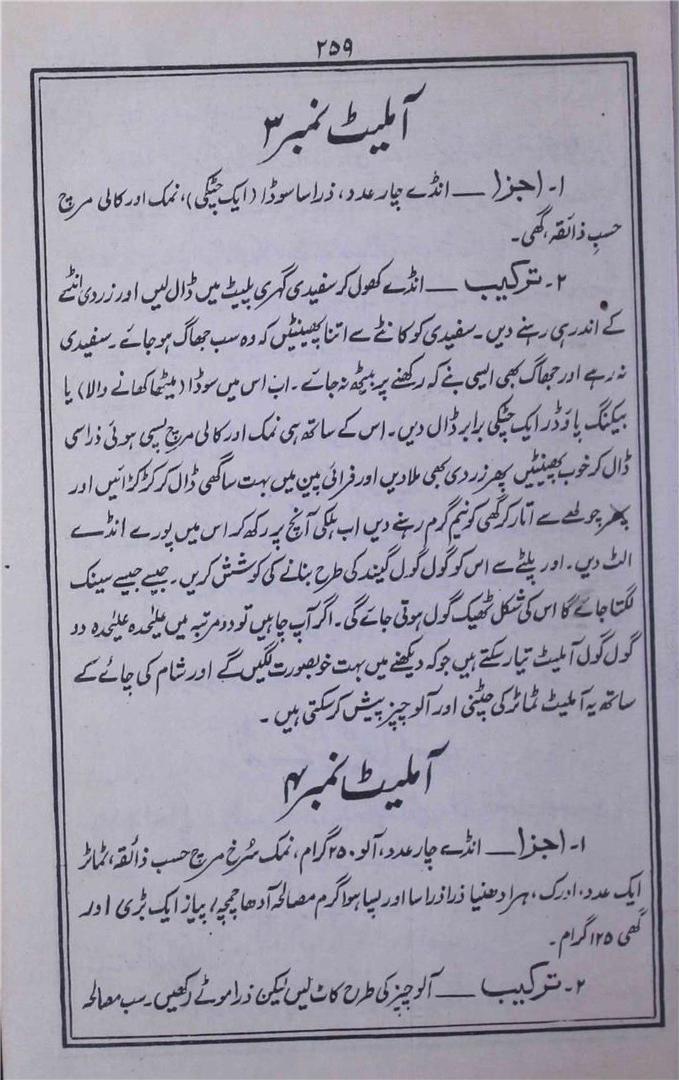 ۲۵۹
آملیٹ نمبر ۳
۱۔ اجزا — انڈے چار عدد، ذرا سا سوڈا (ایک چٹکی)، نمک اور کالی مرچ
حسبِ ذائقہ، گھی۔
۲۔ ترکیب — انڈے کھول کر سفیدی گہری پلیٹ میں ڈال لیں اور زردی انڈے
کے اندر ہی رہنے دیں۔ سفیدی کو کانٹے سے اتنا پھینٹیں کہ وہ سب جھاگ ہو جائے۔ سفیدی
نہ رہے اور جھاگ بھی ایسی بنے کہ رکھنے پر بیٹھ نہ جائے۔ اب اس میں سوڈا (میٹھا کھانے والا) یا
بیکنگ پاؤڈر ایک چٹکی برابر ڈال دیں۔ اس کے ساتھ ہی نمک اور کالی مرچ پسی ہوئی ذرا سی
ڈال کر خوب پھینٹیں پھر زردی بھی ملا دیں اور فرائی پین میں بہت سا گھی ڈال کر کڑکڑائیں اور
پھر چولھے سے اتار کر گھی کو نیم گرم رہنے دیں اب ہلکی آنچ پر رکھ کر اس میں پورے انڈے
الٹ دیں۔ اور پلٹے سے اس کو گول گول گیند کی طرح بنانے کی کوشش کریں۔ جیسے جیسے سینک
لگتا جائے گا اس کی شکل ٹھیک گول ہوتی جائے گی۔ اگر آپ چاہیں تو دو مرتبہ میں علیٰحدہ علیٰحدہ دو
گول گول آملیٹ تیار سکتے ہیں جو کہ دیکھنے میں بہت خوبصورت لگیں گے اور شام کی چائے کے
ساتھ یہ آملیٹ ٹماٹر کی چٹنی اور آلو چپز پیش کر سکتی ہیں۔
آملیٹ نمبر ۴
۱۔ اجزا — انڈے چار عدد، آلو ۲۵۰ گرام، نمک سُرخ مرچ حسب ذائقہ، ٹماٹر
ایک عدد، ادرک، ہرا دھنیا ذرا ذرا سا اور پسا ہوا گرم مصالحہ آدھا چمچہ، پیاز ایک بڑی اور
گھی ۱۲۵ گرام۔
۲۔ ترکیب — آلو چپز کی طرح کاٹ لیں لیکن ذرا موٹے رکھیں۔ سب مصالحہ